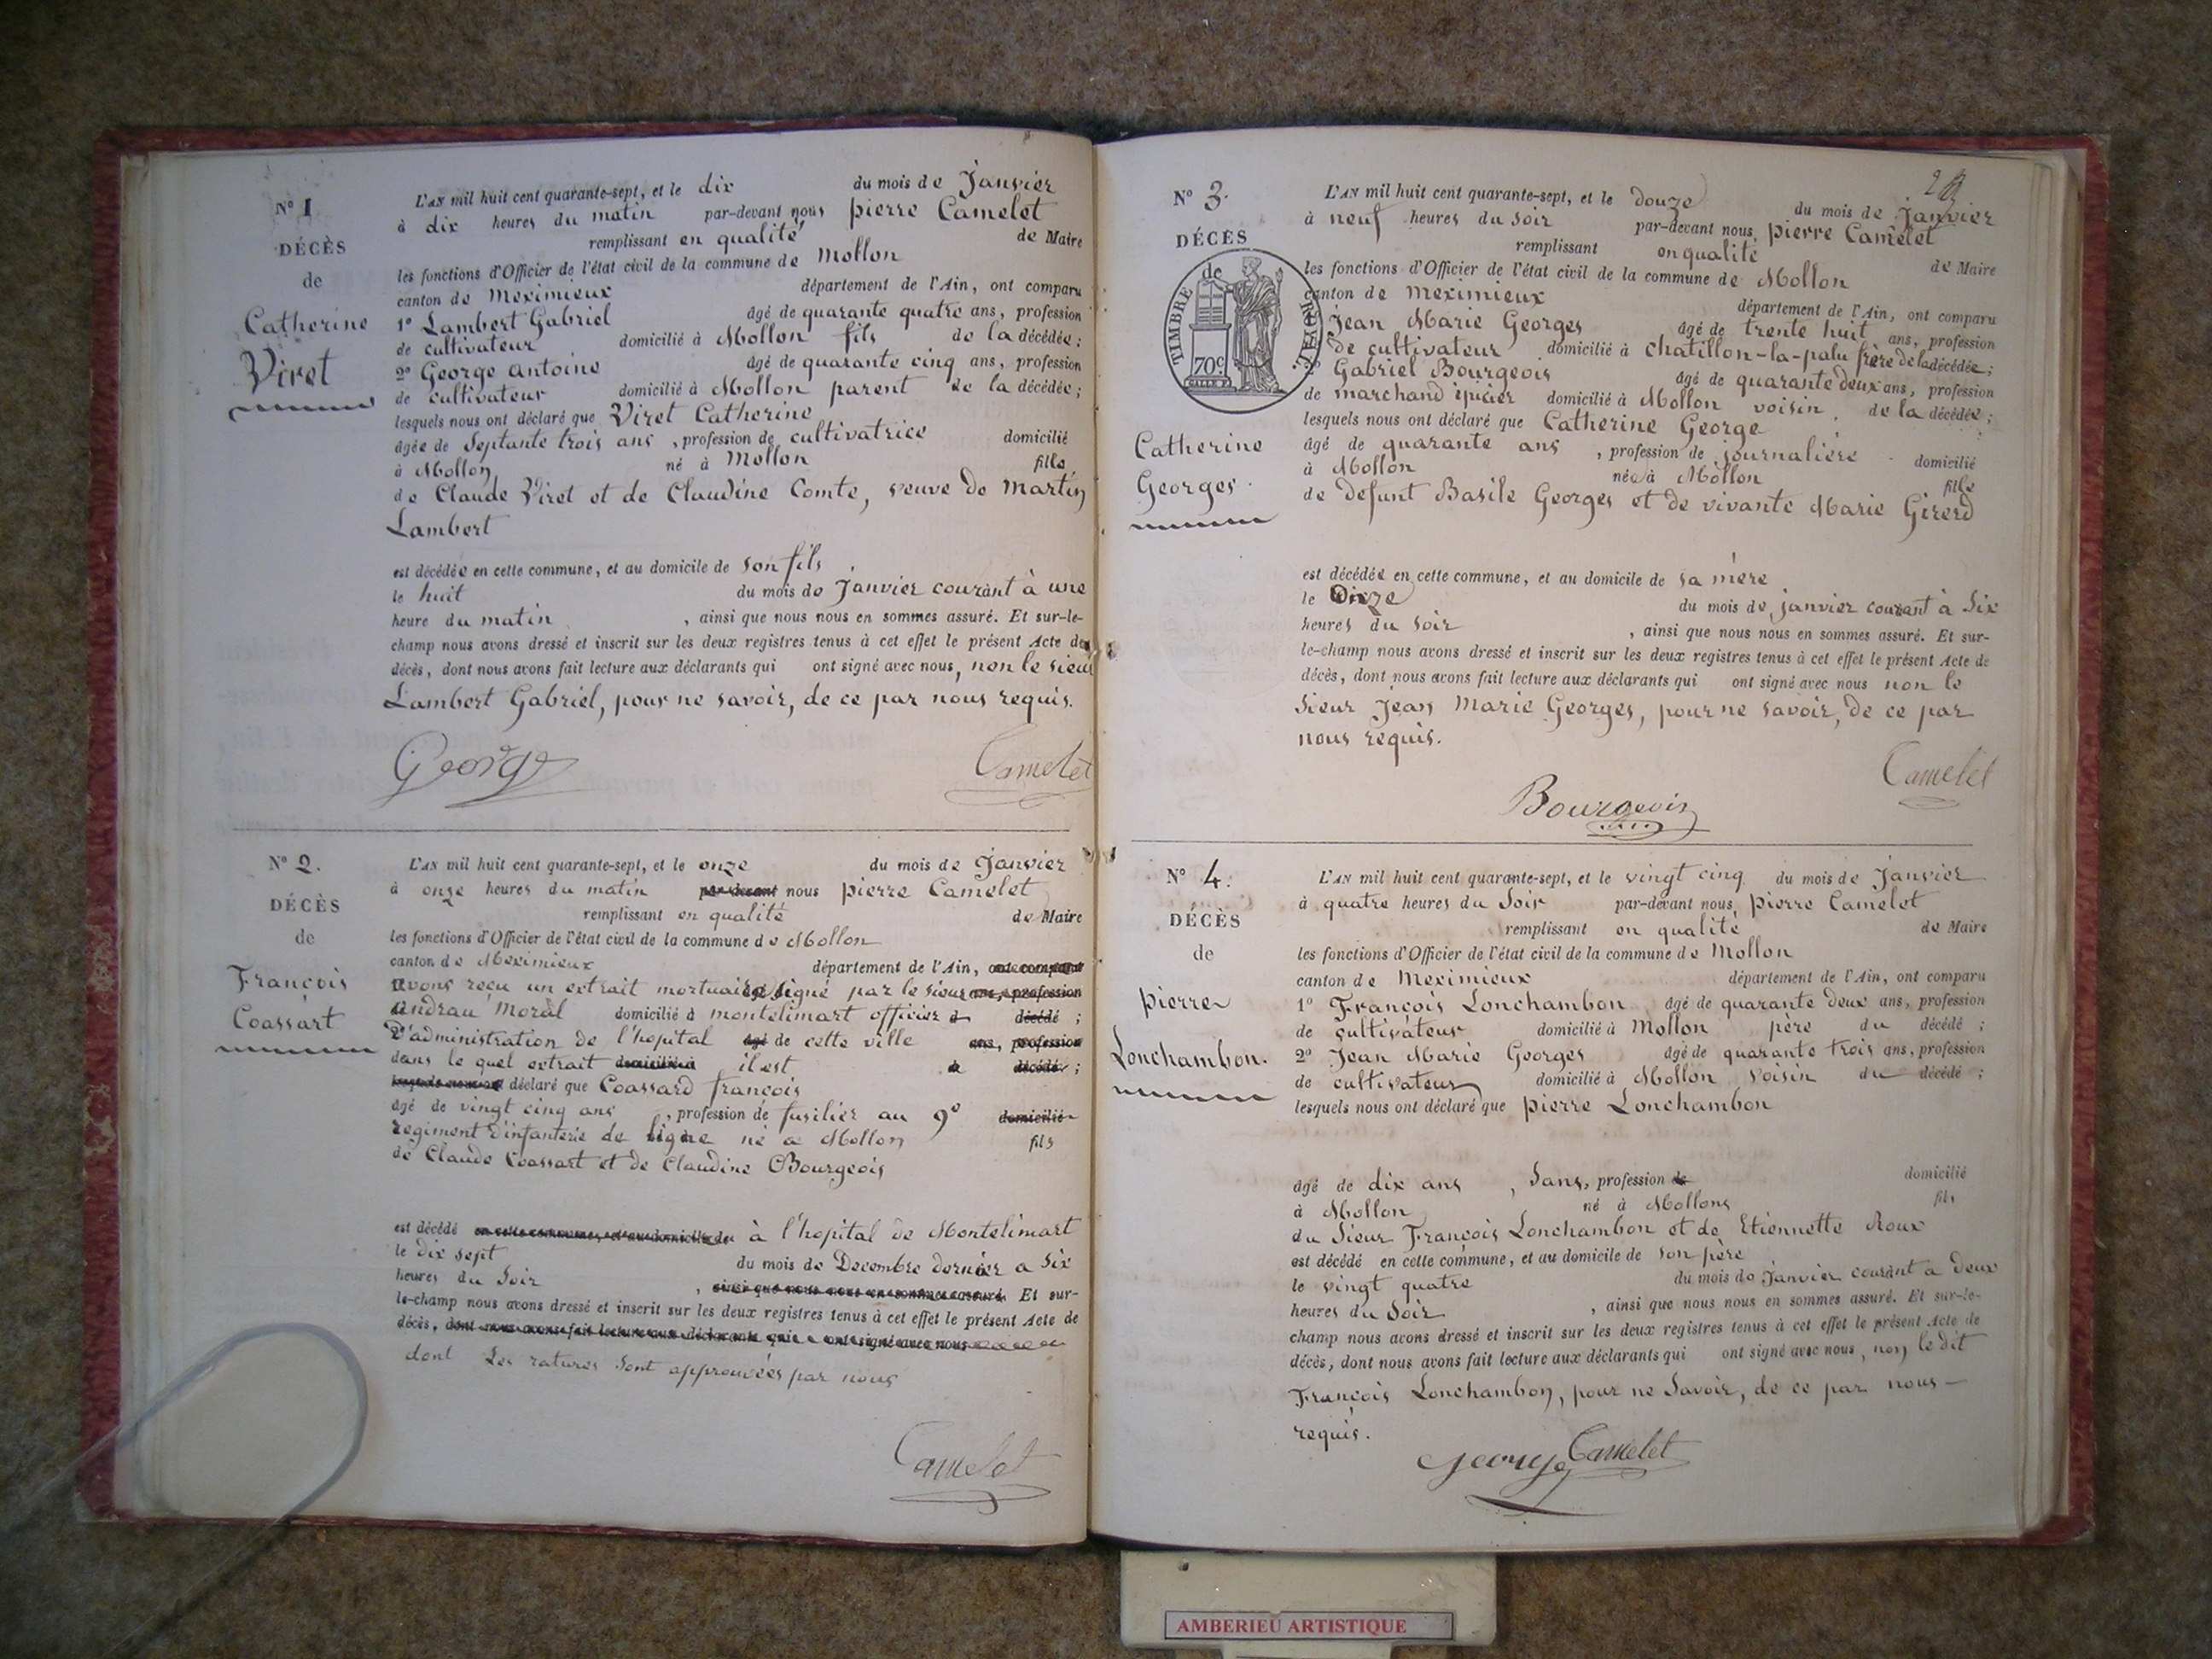 Nº 1
DÉCÈS
de
Catherine
Viret
L'AN mil huit cent quarante-sept, et le dix du mois de Janvier
à dix heures du matin par-devant nous pierre Camelet
remplissant en qualité de Maire
les fonctions d'Officier de l'état civil de la commune de Mollon
canton de Meximieux département de l'Ain, ont comparu
1º Lambert Gabriel âgé de quarante quatre ans, profession
de cultivateur domicilié à Mollon fils de la décédée ;
2º George Antoine âgé de quarante cinq ans, profession
de cultivateur domicilié à Mollon parent de la décédée ;
lesquels nous ont déclaré que Viret Catherine
âgée de Septante trois ans , profession de cultivatrice domicilié
à Mollon né à Mollon fille
de Claude Viret et de Claudine Comte, veuve de Martin
Lambert
est décédée en cette commune, et au domicile de son fils
le huit du mois de Janvier courant à une
heure du matin , ainsi que nous nous en sommes assuré. Et sur-le-
champ nous avons dressé et inscrit sur les deux registres tenus à cet effet le présent Acte de
décès, dont nous avons fait lecture aux déclarants qui ont signé avec nous, non le sieur
Lambert Gabriel, pour ne savoir, de ce par nous requis.
George Camelet
Nº 2.
DÉCÈS
de
François
Coassart
L'AN mil huit cent quarante-sept, et le onze du mois de Janvier
à onze heures du matin par-devant nous pierre Camelet
remplissant en qualité de Maire
les fonctions d'Officier de l'état civil de la commune de Mollon
canton de Meximieux département de l'Ain, ont comparu
avons reçu un extrait mortuaire signé par le sieur ans, profession
andrau Moral domicilié à montelimart officier d décédé ;
D'administration de l'hopital âgé de cette ville ans, profession
dans le quel extrait domicilié à il est d décédé ;
lesquels nous ont déclaré que Coassard françois
âgé de vingt cinq ans , profession de fusilier au 9e domicilié
regiment d'infanterie de ligne né a Mollon fils
de Claude Coassart et de Claudine Bourgeois
est décédé en cette commune, et au domicile de à l'hopital de Montelimart
le dix sept du mois de Decembre dernier a six
heures du soir , ainsi que nous nous en sommes assuré. Et sur-
le-champ nous avons dressé et inscrit sur les deux registres tenus à cet effet le présent Acte de
décès, dont nous avons fait lecture aux déclarants qui ont signé avec nous
dont les ratures sont approuvées par nous
Camelet
28
Nº 3.
DÉCÈS
de
TIMBRE ROYAL.
70c.
Catherine
Georges.
L'AN mil huit cent quarante-sept, et le douze du mois de Janvier
à neuf heures du soir par-devant nous, pierre Camelet
remplissant en qualité de Maire
les fonctions d'Officier de l'état civil de la commune de Mollon
canton de Meximieux département de l'Ain, ont comparu
Jean Marie Georges âgé de trente huit ans, profession
de cultivateur domicilié à chatillon-la-palu frère de la décédée ;
Gabriel Bourgeois âgé de quarante deux ans, profession
de marchand épicier domicilié à Mollon voisin de la décédée ;
lesquels nous ont déclaré que Catherine George
âgé de quarante ans , profession de journalière domicilié
à Mollon née à Mollon fille
de defunt Basile Georges et de vivante Marie Girerd
est décédée en cette commune, et au domicile de sa mère
le du mois de janvier courant à six
heures du soir , ainsi que nous nous en sommes assuré. Et sur-
le-champ nous avons dressé et inscrit sur les deux registres tenus à cet effet le présent Acte de
décès, dont nous avons fait lecture aux déclarants qui ont signé avec nous non le
sieur Jean Marie Georges, pour ne savoir, de ce par
nous requis.
Camelet
Bourgeois
Nº 4.
DÉCÈS
de
pierre
Lonchambon.
L'AN mil huit cent quarante-sept, et le vingt cinq du mois de Janvier
à quatre heures du soir par-devant nous, pierre Camelet
remplissant en qualité de Maire
les fonctions d'Officier de l'état civil de la commune de Mollon
canton de Meximieux département de l'Ain, ont comparu
1º François Lonchambon âgé de quarante deux ans, profession
de cultivateur domicilié à Mollon père du décédé ;
2º Jean Marie Georges âgé de quarante trois ans, profession
de cultivateur domicilié à Mollon voisin du décédé ;
lesquels nous ont déclaré que pierre Lonchambon
âgé de dix ans , sans, profession de domicilié
à Mollon né à Mollons fils
du Sieur François Lonchambon et de Etiennette Roux
est décédé en cette commune, et au domicile de son père
le vingt quatre du mois de janvier courant a deux
heures du soir , ainsi que nous nous en sommes assuré. Et sur-le-
champ nous avons dressé et inscrit sur les deux registres tenus à cet effet le présent Acte de
décès, dont nous avons fait lecture aux déclarants qui ont signé avec nous, non le dit
François Lonchambon, pour ne Savoir, de ce par nous
requis.
George Camelet
AMBERIEU ARTISTIQUE